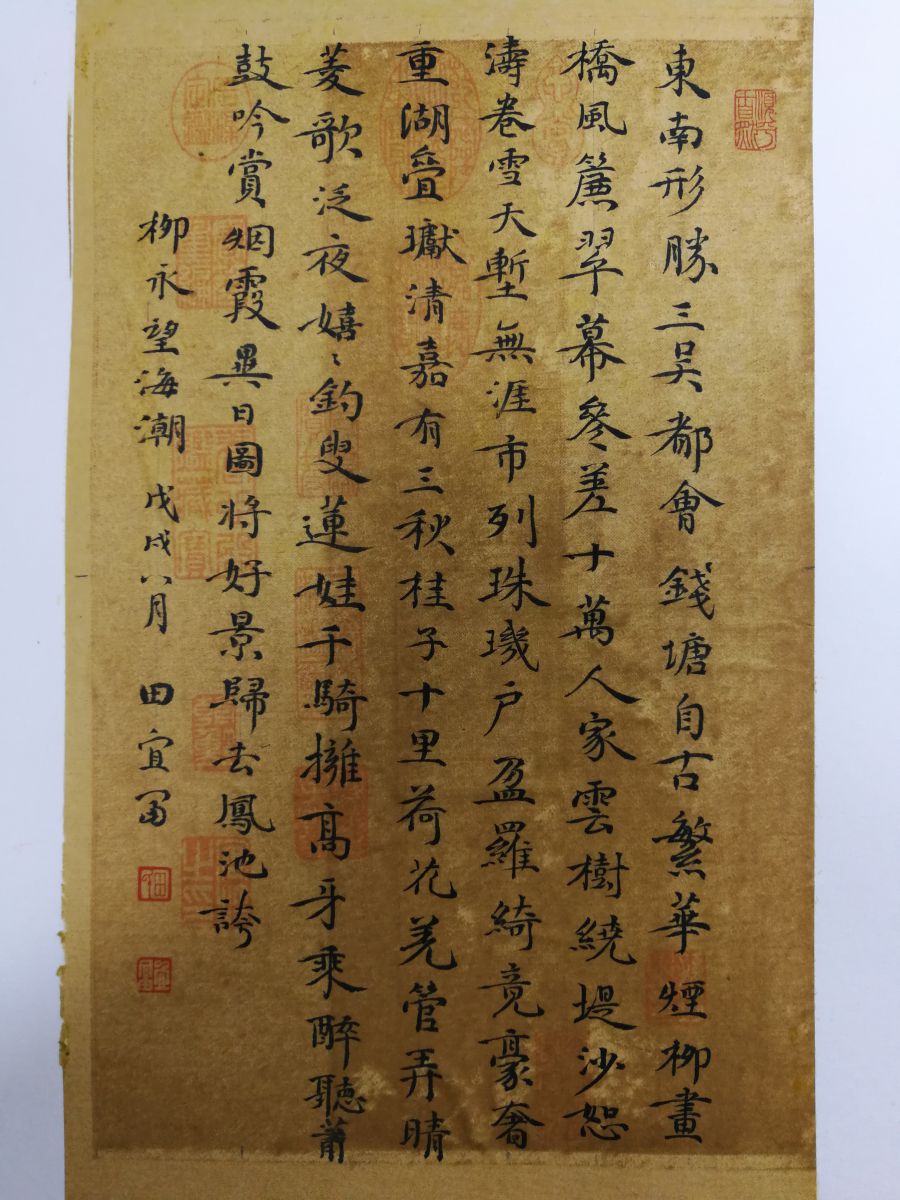 東南形勝三吳都會錢塘自古繁華煙柳畫
橋風簾翠幕參差十萬人家雲樹繞堤沙恕
濤卷雪天塹無涯市列珠璣户盈羅綺竟豪奢
重湖疊巘清嘉有三秋桂子十里荷花羌管弄晴
菱歌泛夜嬉〻釣叟蓮娃千騎擁高牙乘醉聽蕭
鼓吟賞烟霞異日圖將好景歸去鳳池誇
柳永望海潮 戊戌八月 田宜冨